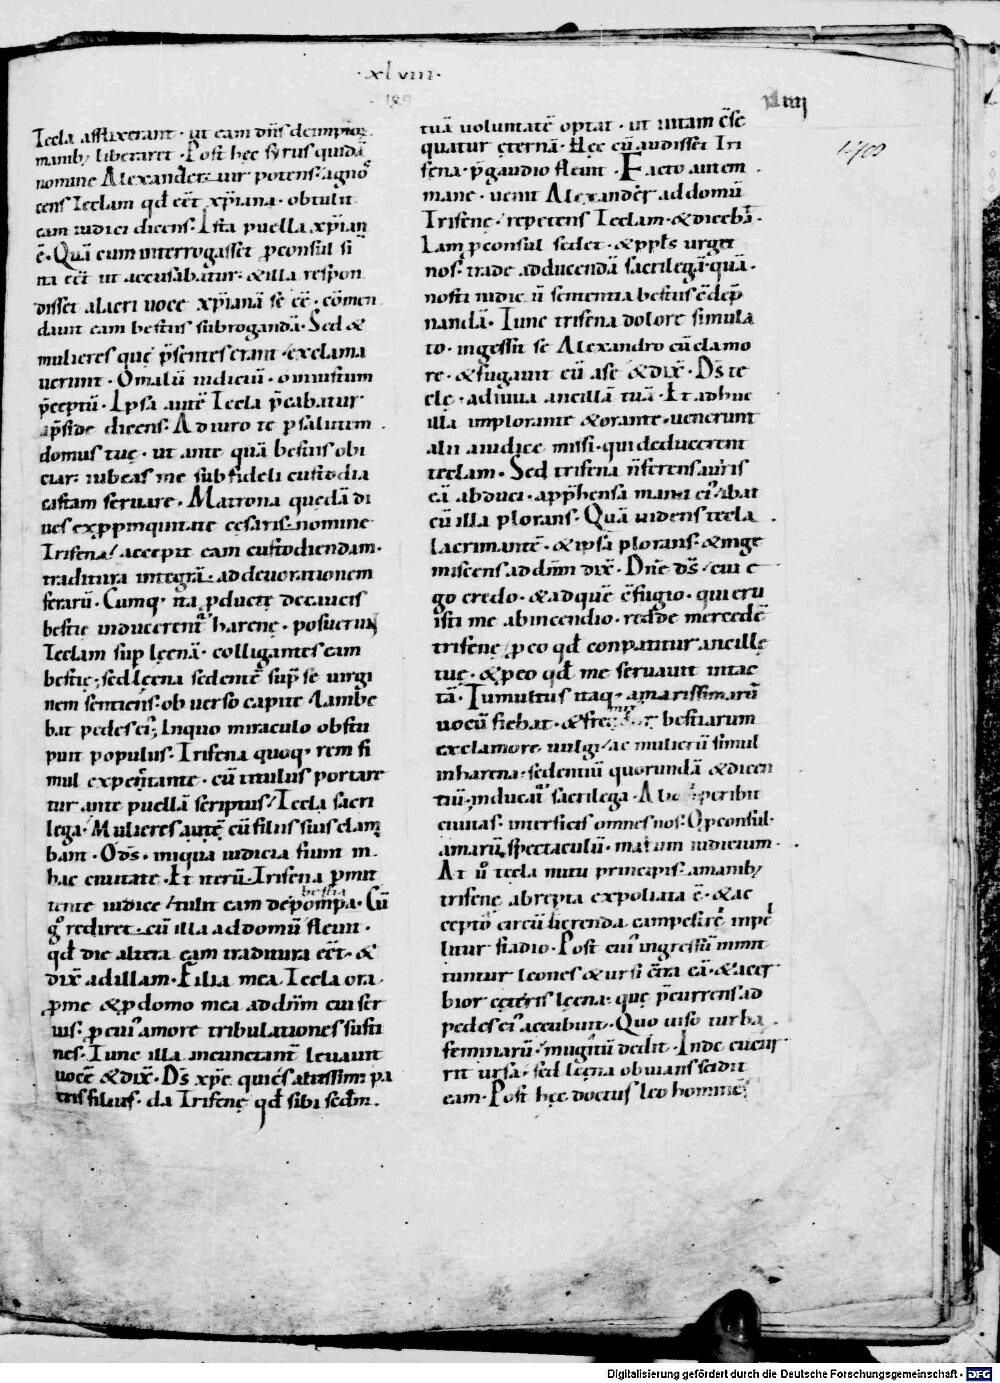 ·xlviii·
188
Tecla afflixerant· ut eam dn̄s de impioꝝ
manib; liberaret· Post hęc syrus quidā
nomine Alexander· uir potens· agnos
cens Teclam qđ eēt xp̄iana· obtulit
eam iudici dicens· Ista puella xp̄ian
ē· Quā cum interrogasset p̱consul si
ita eēt ut accusabatur· & illa respon
disset alacri uoce xp̄ianā se eē· cōmen
dauit eam bestiis subrogandā· Sed &
mulieres quę p̄sentes erant exclama
uerunt· O malū iudiciū· o iniustum
p̄ceptū· Ipsa autē Tecla p̄cabatur
apside dicens· Adiuro te p̱ salutem
domus tuę· ut ante quā bestiis obi
ciar· iubeas me sub fideli custodia
castam seruare· Matrona quędā di
ues ex p̱pinquitate cęsaris· nomine
Trifena accepit eam custodiendam·
traditura integrā· ad deuorationem
ferarū· Cumq; ita p̱ductę de caueis
bestię inducerent᷑ harenę· posuerunt
Teclam sup̱ leęnā· colligantes eam
bestię· sed leęna sedentē sup̱ se uirgi
nem sentiens· ob uerso capite lambe
bat pedes ei᷒· In quo miraculo obstu
puit populus· Trifena quoq; rem si
mul expectante· cū titulus portare
tur ante puellā scriptus Tecla sacri
lega· Mulieres autē cū filiis suis clam
bant· O dn̄s· iniqua iudicia fiunt in
hac ciuitate· Et iterū Trifena p̱mit
bestia
tente iudice tulit eam de pompa· Cū
g̊ rediret cū illa ad domū fleuit·
qđ die altera eam traditura eēt· &
dix̄ ad illam· Filia mea Tecla ora
p̱ me & p̱ domo mea ad dn̄m cui ser
uis· p̱ cui᷒ amore tribulationes susti
nes· Tunc illa incunctant᷑ leuauit
uocē & dix̄· Ds̄ xp̄e qui es altissim᷒ pa
tris filius· da Trifenę qđ sibi sedm̄
xliiij
1400
tuā uoluntatē optat· ut uitam cōse
quatur ęternā· Hęc cū audisset Tri
fena· p̄ gaudio fleuit· Facto autem
mane· uenit Alexander ad domū
Trifenę· repetens Teclam· & dicebā·
Iam p̱consul sedet· & pp̄ls urget
nos· trade ad ducendā sacrilegā· quā
nosti iudicū sententia bestiis eē dep̱
nandā· Tunc trifena dolore simula
to· ingessit se Alexandro cū clamo
re· & fugauit eū a se & dix̄· Ds̄ te
clę· adiuua ancillā tuā· Et adhuc
illa implorante & orante· uenerunt
alii a iudice missi· qui deducerent
teclam· Sed trifena n̄ ferens auris
eā abduci· app̄hensa manu ei᷒ ibat
cū illa plorans· Quā uidens tecla
lacrimantē· & ipsa plorans· & inge
miscens ad dn̄m dix̄· Dn̄e ds̄ cui e
go credo· & ad quē cōfugio· qui eru
isti me ab incendio· redde mercedē
trifenę p̱ eo qđ conpatitur ancillę
tuę· & p̱ eo qđ me seruauit intac
tā· Tumultus itaq; amarissimarū
uocū fiebat· & fremitus bestiarum
exclamore uulgi· ac mulierū simul
in harena· sedentiū quorundā & dicen
tiū· inducat᷑ sacrilega· A peribit
ciuitas· interficis omnes nos· O p̱consul·
amarū spectaculū· malum iudicium·
At ů tecla nutu principis· a manib;
trifenę abrepta expoliata ē· & ac
cepto circū ferenda campestre· inpel
litur stadio· Post cui᷒ ingressū inmit
tuntur leones & ursi cōtra eā· & acer
bior cęteris leęna· quę p̄currens ad
pedes ei᷒ accubuit· Quo uiso turba
feminarū· mugitū dedit· Inde cucur
rit ursa· sed leęna obuians scidit
eam· Post hęc doctus leo homines
Digitalisierung gefördert durch die Deutsche Forschungsgemeinschaft - DFG